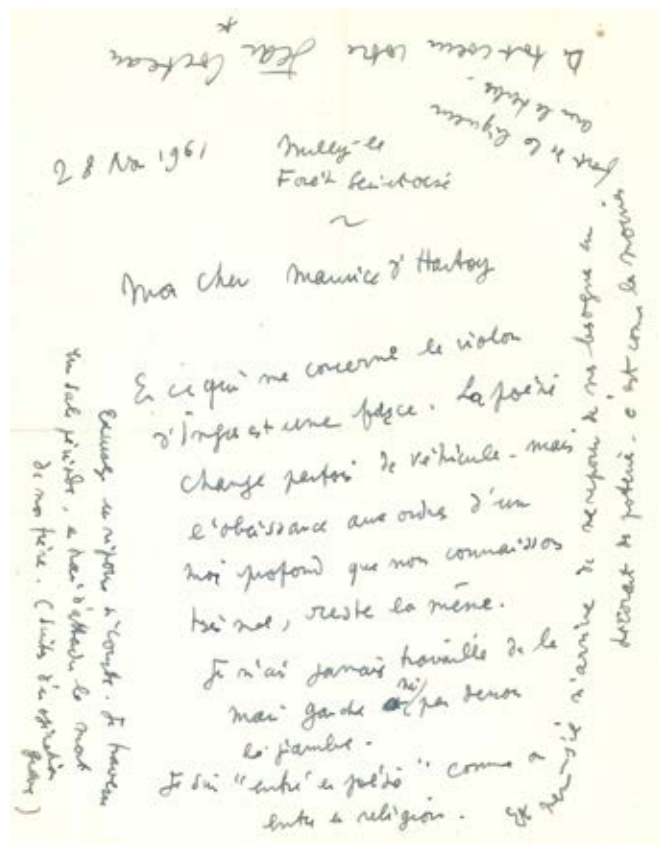 28 Nov 1961
Milly-la
Forêt Seine et Oise
Mon cher Maurice d'Hartoy
En ce qui me concerne le violon
d'Ingres est une farce. La poésie
change parfois de véhicule - mais
l'obéissance aux ordres d'un
moi profond que nous connaissons
très mal, reste la même.
Je n'ai jamais travaillé de la
main gauche ni par dessous
la jambe.
Je suis "entré en poésie" comme on
entre en religion.
Et s'il m'arrive de me reposer de ma besogne en
décorant des poteries - c'est comme
De tout coeur votre Jean Cocteau
*
Excusez ma réponse si courte. Je traverse
une sale période, la mort
de mon frère. (suites d'opération
grave)